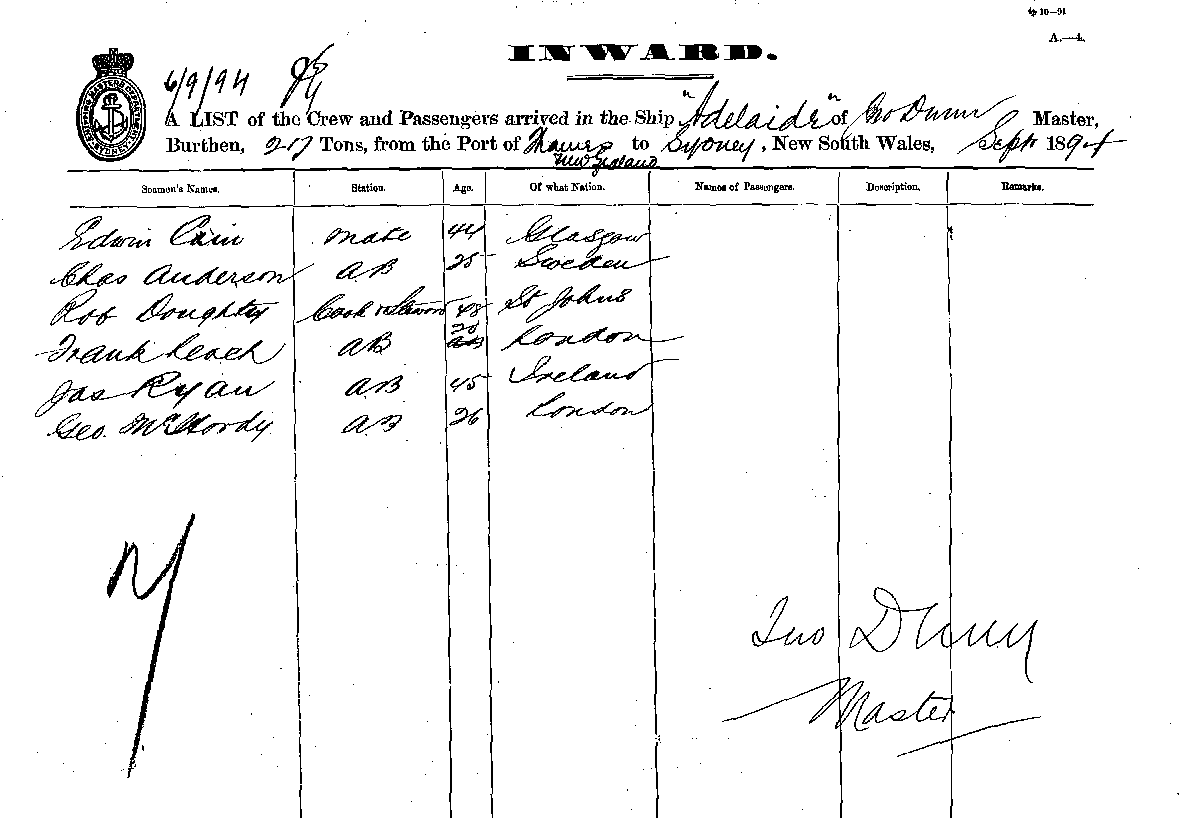 10—91
A.—4.
INWARD.
6/9/94
A LIST of the Crew and Passengers arrived in the Ship "Adelaide" of Jno Dunn Master,
Burthen, 217 Tons, from the Port of Thames to Sydney, New South Wales, Sept 1894
New Zealand
Seamen's Names. Station. Age. Of what Nation. Names of Passengers. Description. Remarks.
Edwin Cain Mate 44 Glasgow
Chas Anderson AB 25 Sweden
Rob Doughty Cook & Steward 48 St Johns
Frank Leach AB 28 London
Jas Ryan AB 45 Ireland
Geo. McHardy AB 26 London
Jno Dunn
Master